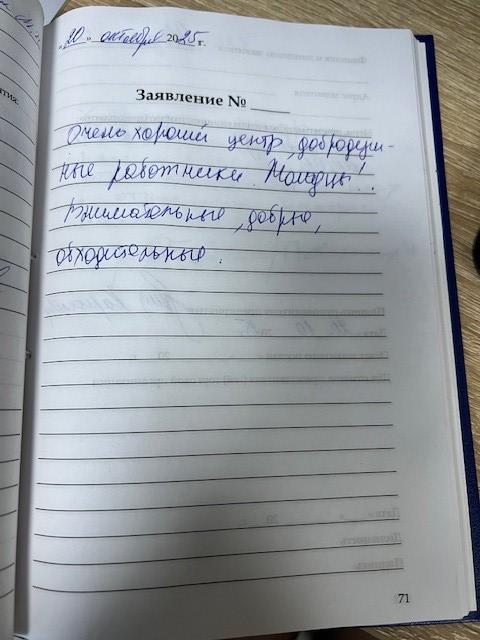 « 20 » октября 2025 г.
Заявление № ____
Очень хороший центр, добродуш-
ные работники. Молодцы!.
Внимательные, добрые,
обходительные.
71